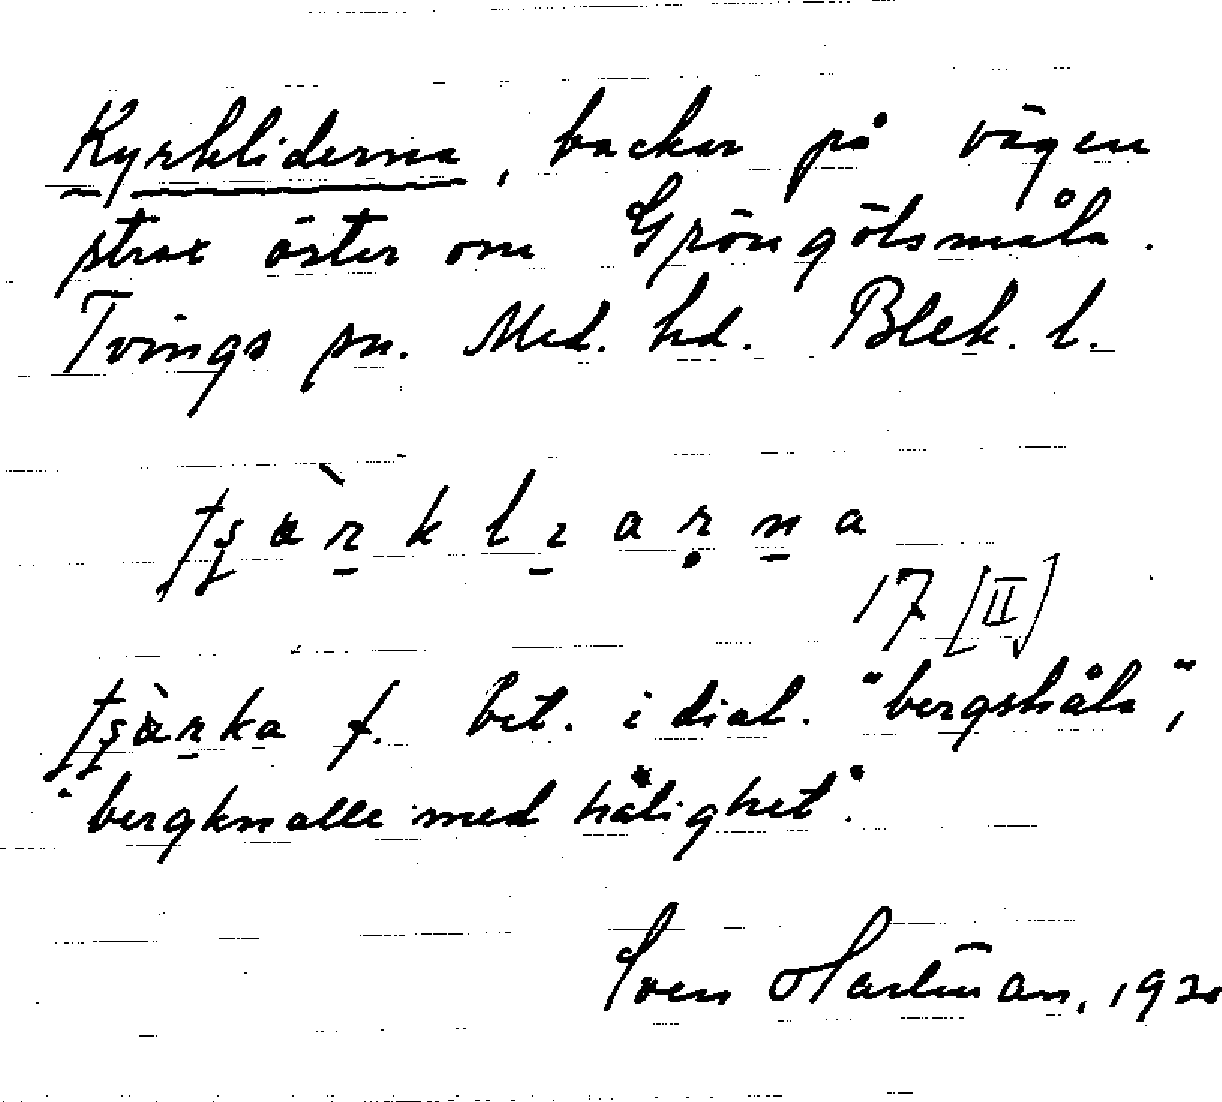 Kyrkliderna, backar på vägen
strax öster om Gröngölsmåla.
Tvings sn. Med. hd. Blek. l.
17 [II]
f. bet. i dial. "bergshåla",
"bergknalle med hålighet".
Sven Hartman, 192